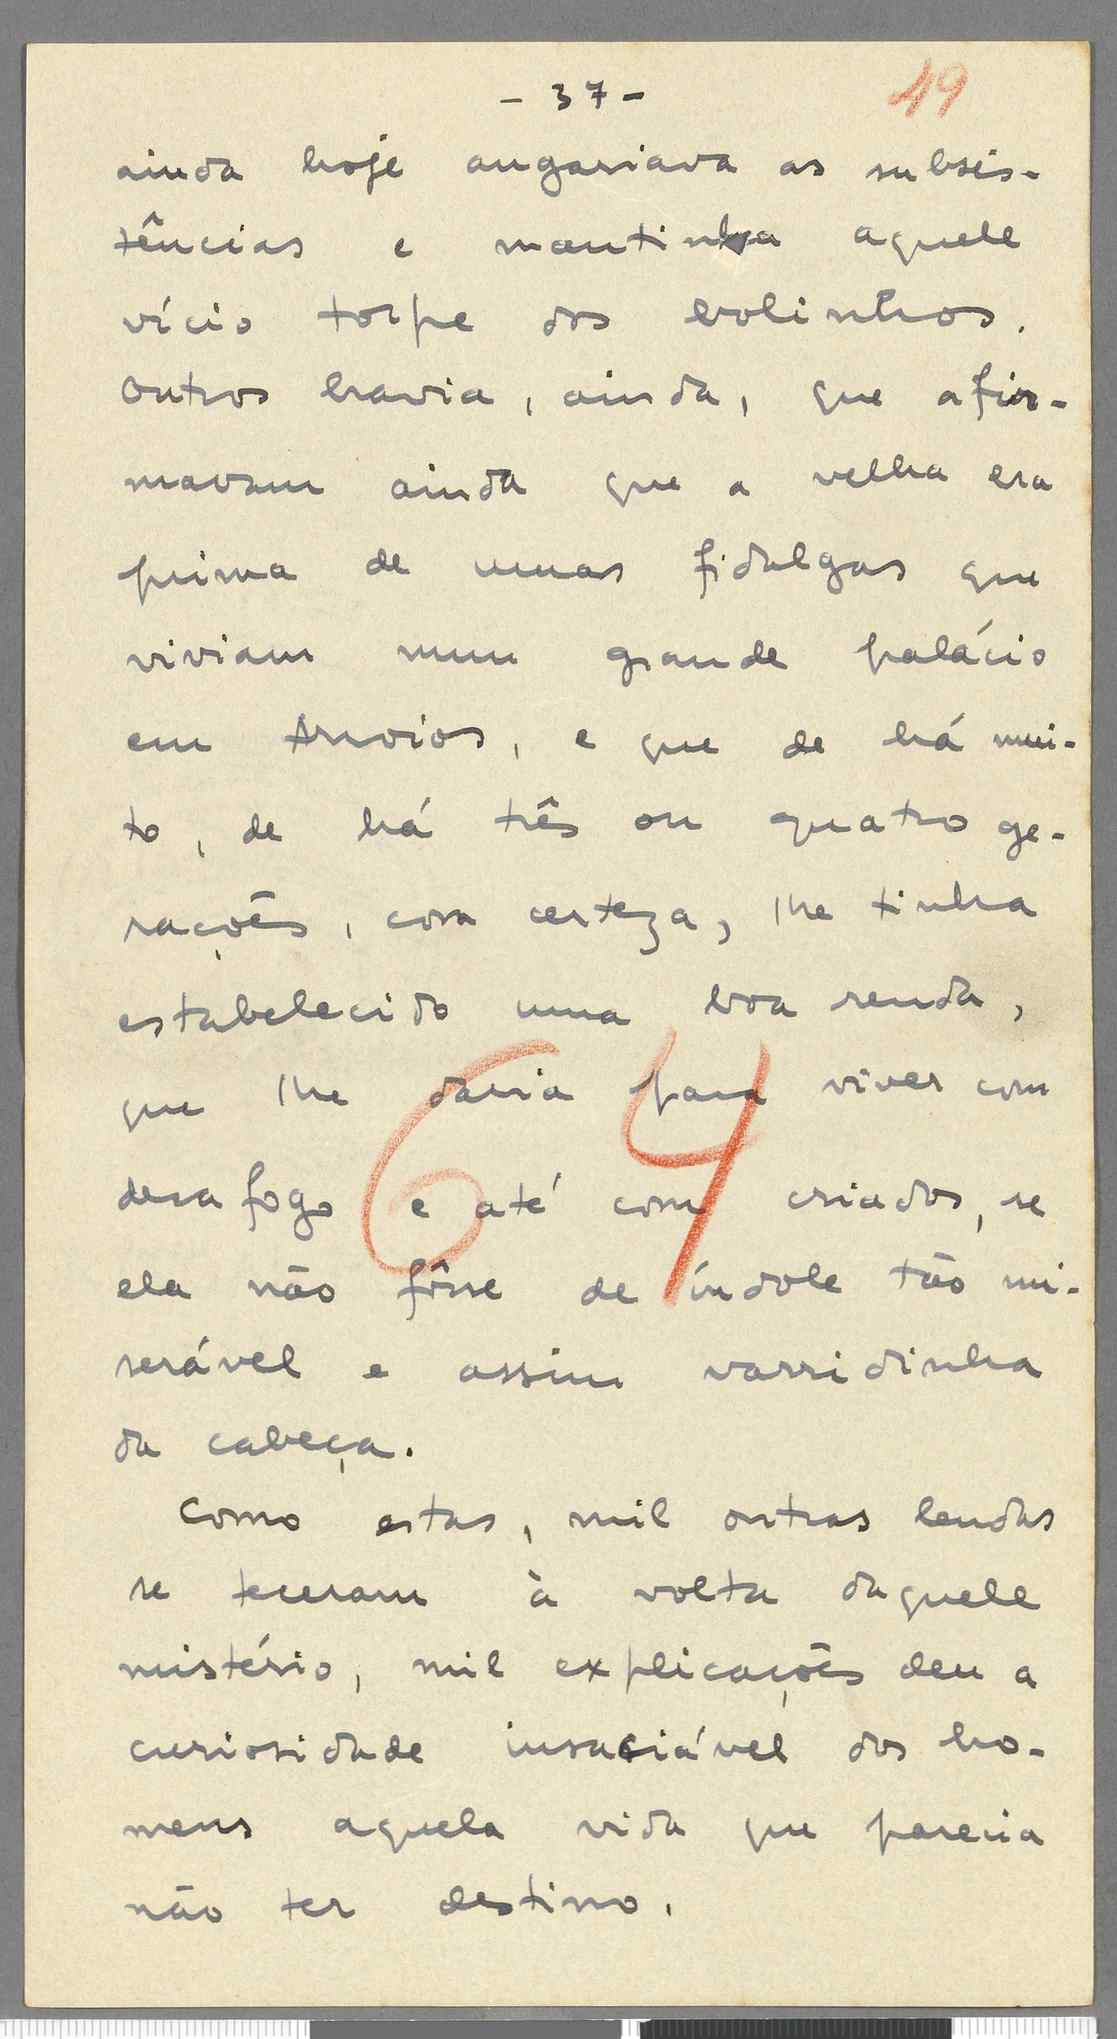 - 37 -
49
ainda hoje angariava as subsis-
tências e mantinha aquele
vício torpe dos bolinhos.
Outros havia, ainda, que afir-
mavam ainda que a velha era
prima de umas fidalgas que
viviam num grande palácio
em Arroios, e que de há mui-
to, de há três ou quatro ge-
rações, com certeza, lhe tinha
estabelecido uma boa renda,
que lhe daria para viver com
desafogo e até com criados, se
ela não fôsse de índole tão mi-
serável e assim varridinha
da cabeça.
Como estas, mil outras lendas
se teceram à volta daquele
mistério, mil explicações deu a
curiosidade insaciável dos ho-
mens aquela vida que parecia
não ter destino.
64